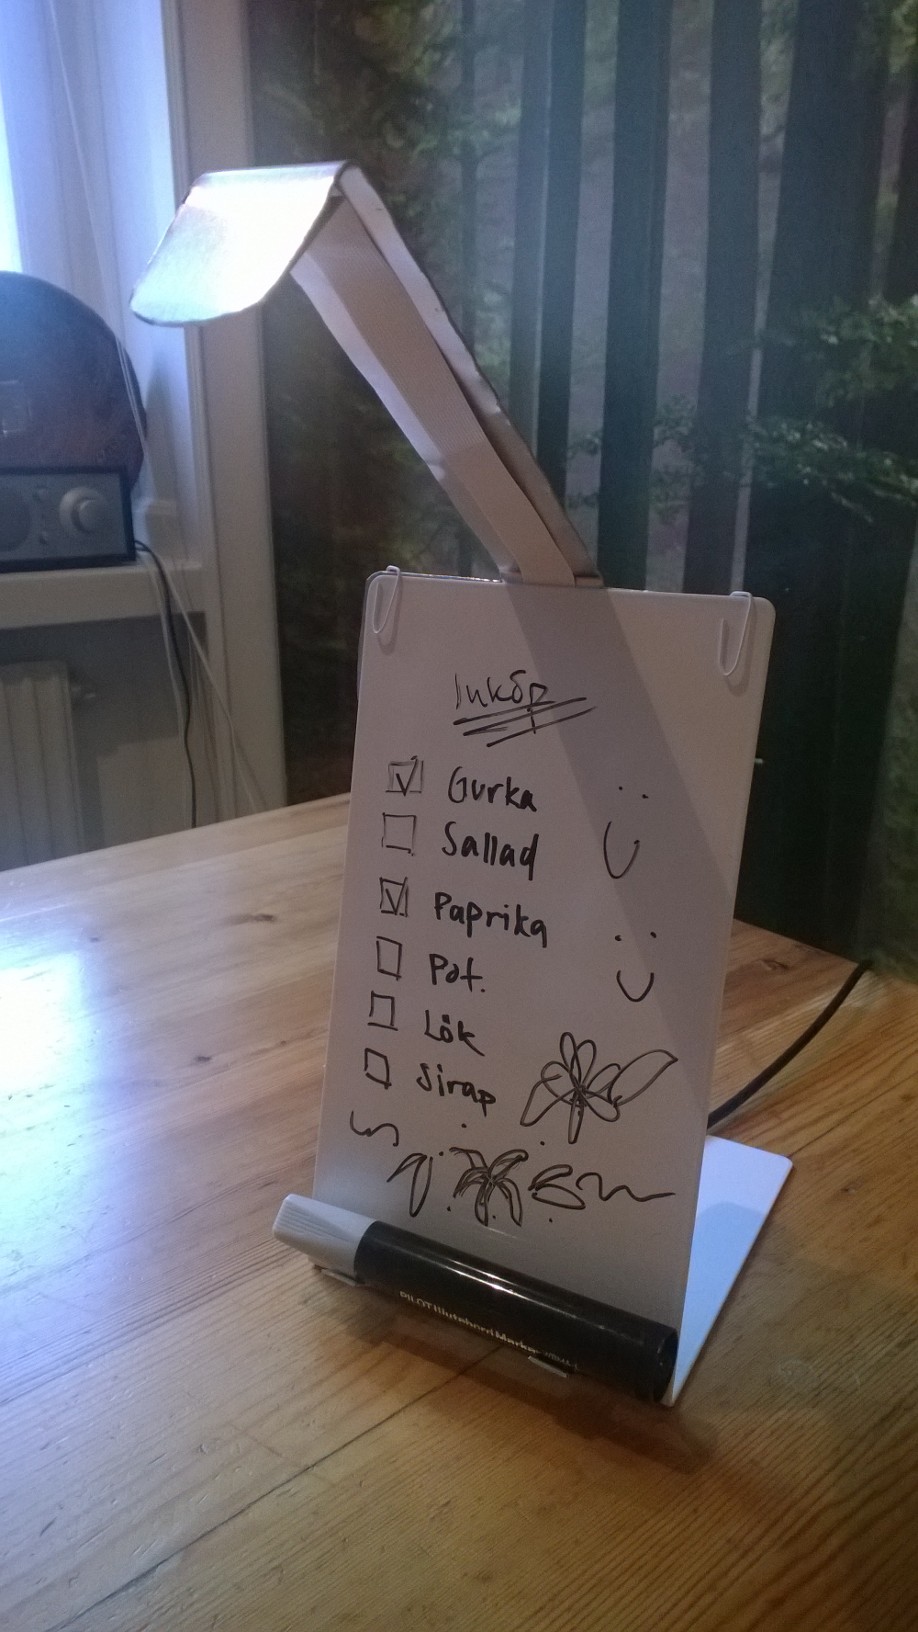 Inköp
Gurka
Sallad
Paprika
Pot.
Lök
Sirap
PILOT Wyteboard Marker